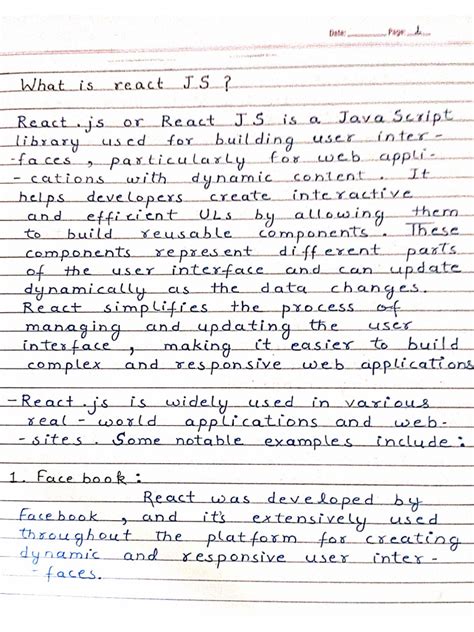 Date: Page: 1
What is react JS ?
React.js or React JS is a JavaScript
library used for building user inter-
-faces, particularly for web appli-
-cations with dynamic content. It
helps developers create interactive
and efficient ULs by allowing them
to build reusable components. These
components represent different parts
of the user interface and can update
dynamically as the data changes.
React simplifies the process of
managing and updating the user
interface, making it easier to build
complex and responsive web applications
-React.js is widely used in various
real-world applications and web-
-sites. Some notable examples include:
1. Facebook:
React was developed by
Facebook, and it's extensively used
throughout the platform for creating
dynamic and responsive user inter-
-faces.